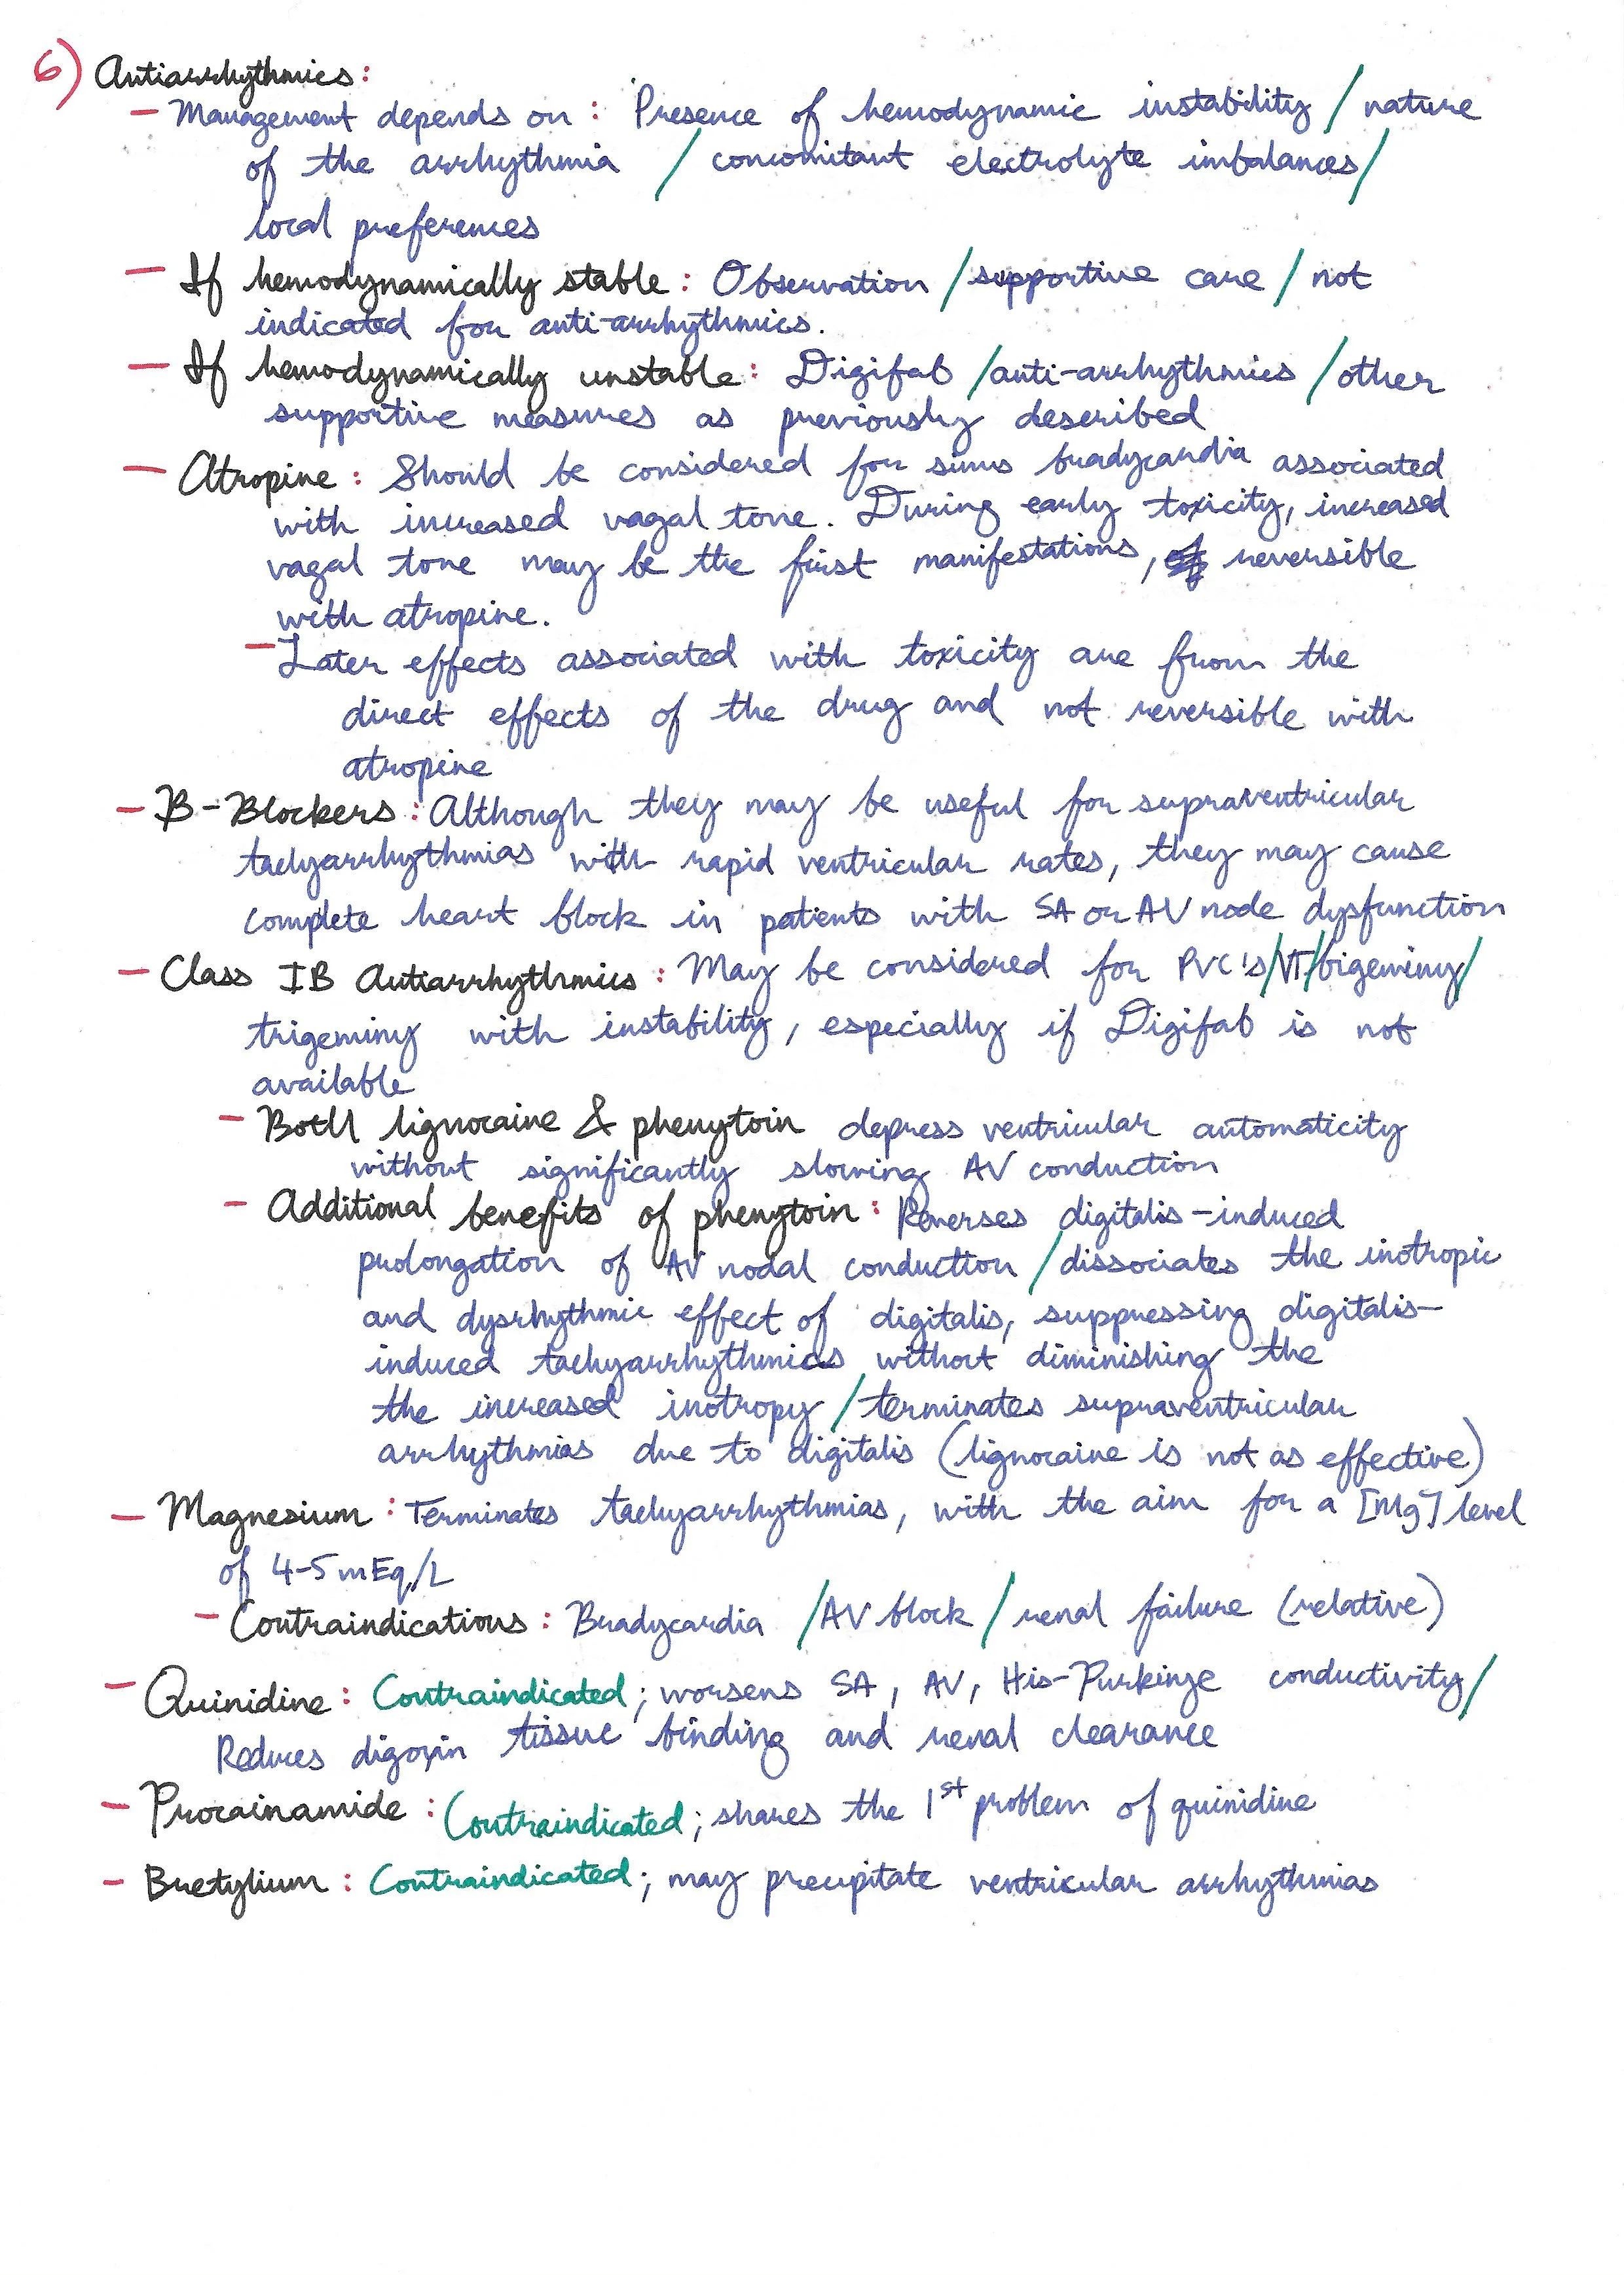 6) Antiarrhythmics:
– Management depends on: Presence of hemodynamic instability / nature
of the arrhythmia / concomitant electrolyte imbalances /
local preferences
– If hemodynamically stable: Observation / supportive care / not
indicated for anti-arrhythmics.
– If hemodynamically unstable: Digifab / anti-arrhythmics / other
supportive measures as previously described
– Atropine: Should be considered for sinus bradycardia associated
with increased vagal tone. During early toxicity, increased
vagal tone may be the first manifestations, reversible
with atropine.
– Later effects associated with toxicity are from the
direct effects of the drug and not reversible with
atropine
– B-Blockers: Although they may be useful for supraventricular
tachyarrhythmias with rapid ventricular rates, they may cause
complete heart block in patients with SA or AV node dysfunction
– Class IB Antiarrhythmics: May be considered for PVC's / VT / bigeminy /
trigeminy with instability, especially if Digifab is not
available
– Both lignocaine & phenytoin depress ventricular automaticity
without significantly slowing AV conduction
– Additional benefits of phenytoin: Reverses digitalis-induced
prolongation of AV nodal conduction / dissociates the inotropic
and dysrhythmic effect of digitalis, suppressing digitalis-
induced tachyarrhythmias without diminishing the
the increased inotropy / terminates supraventricular
arrhythmias due to digitalis (lignocaine is not as effective)
– Magnesium: Terminates tachyarrhythmias, with the aim for a [Mg] level
of 4-5 mEq/L
– Contraindications: Bradycardia / AV block / renal failure (relative)
– Quinidine: Contraindicated; worsens SA, AV, His-Purkinje conductivity /
Reduces digoxin tissue binding and renal clearance
– Procainamide: Contraindicated; shares the 1st problem of quinidine
– Bretylium: Contraindicated; may precipitate ventricular arrhythmias